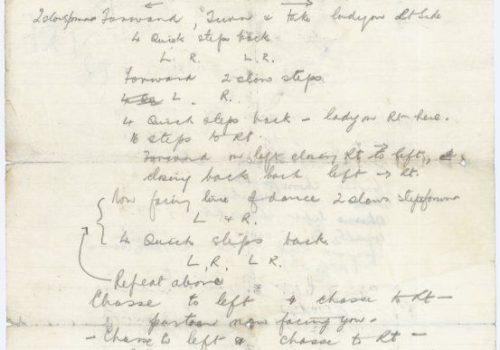 2 slow forward Forward, Turn & take lady on Rt Side
4 Quick steps back
L. R. L. R.
Forward 2 slow steps
L. R.
4 Quick steps back - lady on Rt here.
16 steps to Rt.
Forward on left closing Rt to left,
closing back back left → Rt.
Now facing line of dance 2 slow steps forward
L & R.
4 Quick steps back
L, R. L R.
Repeat above
Chasse to left & chasse to Rt -
partner now facing you -
- Chasse to left & chasse to Rt -